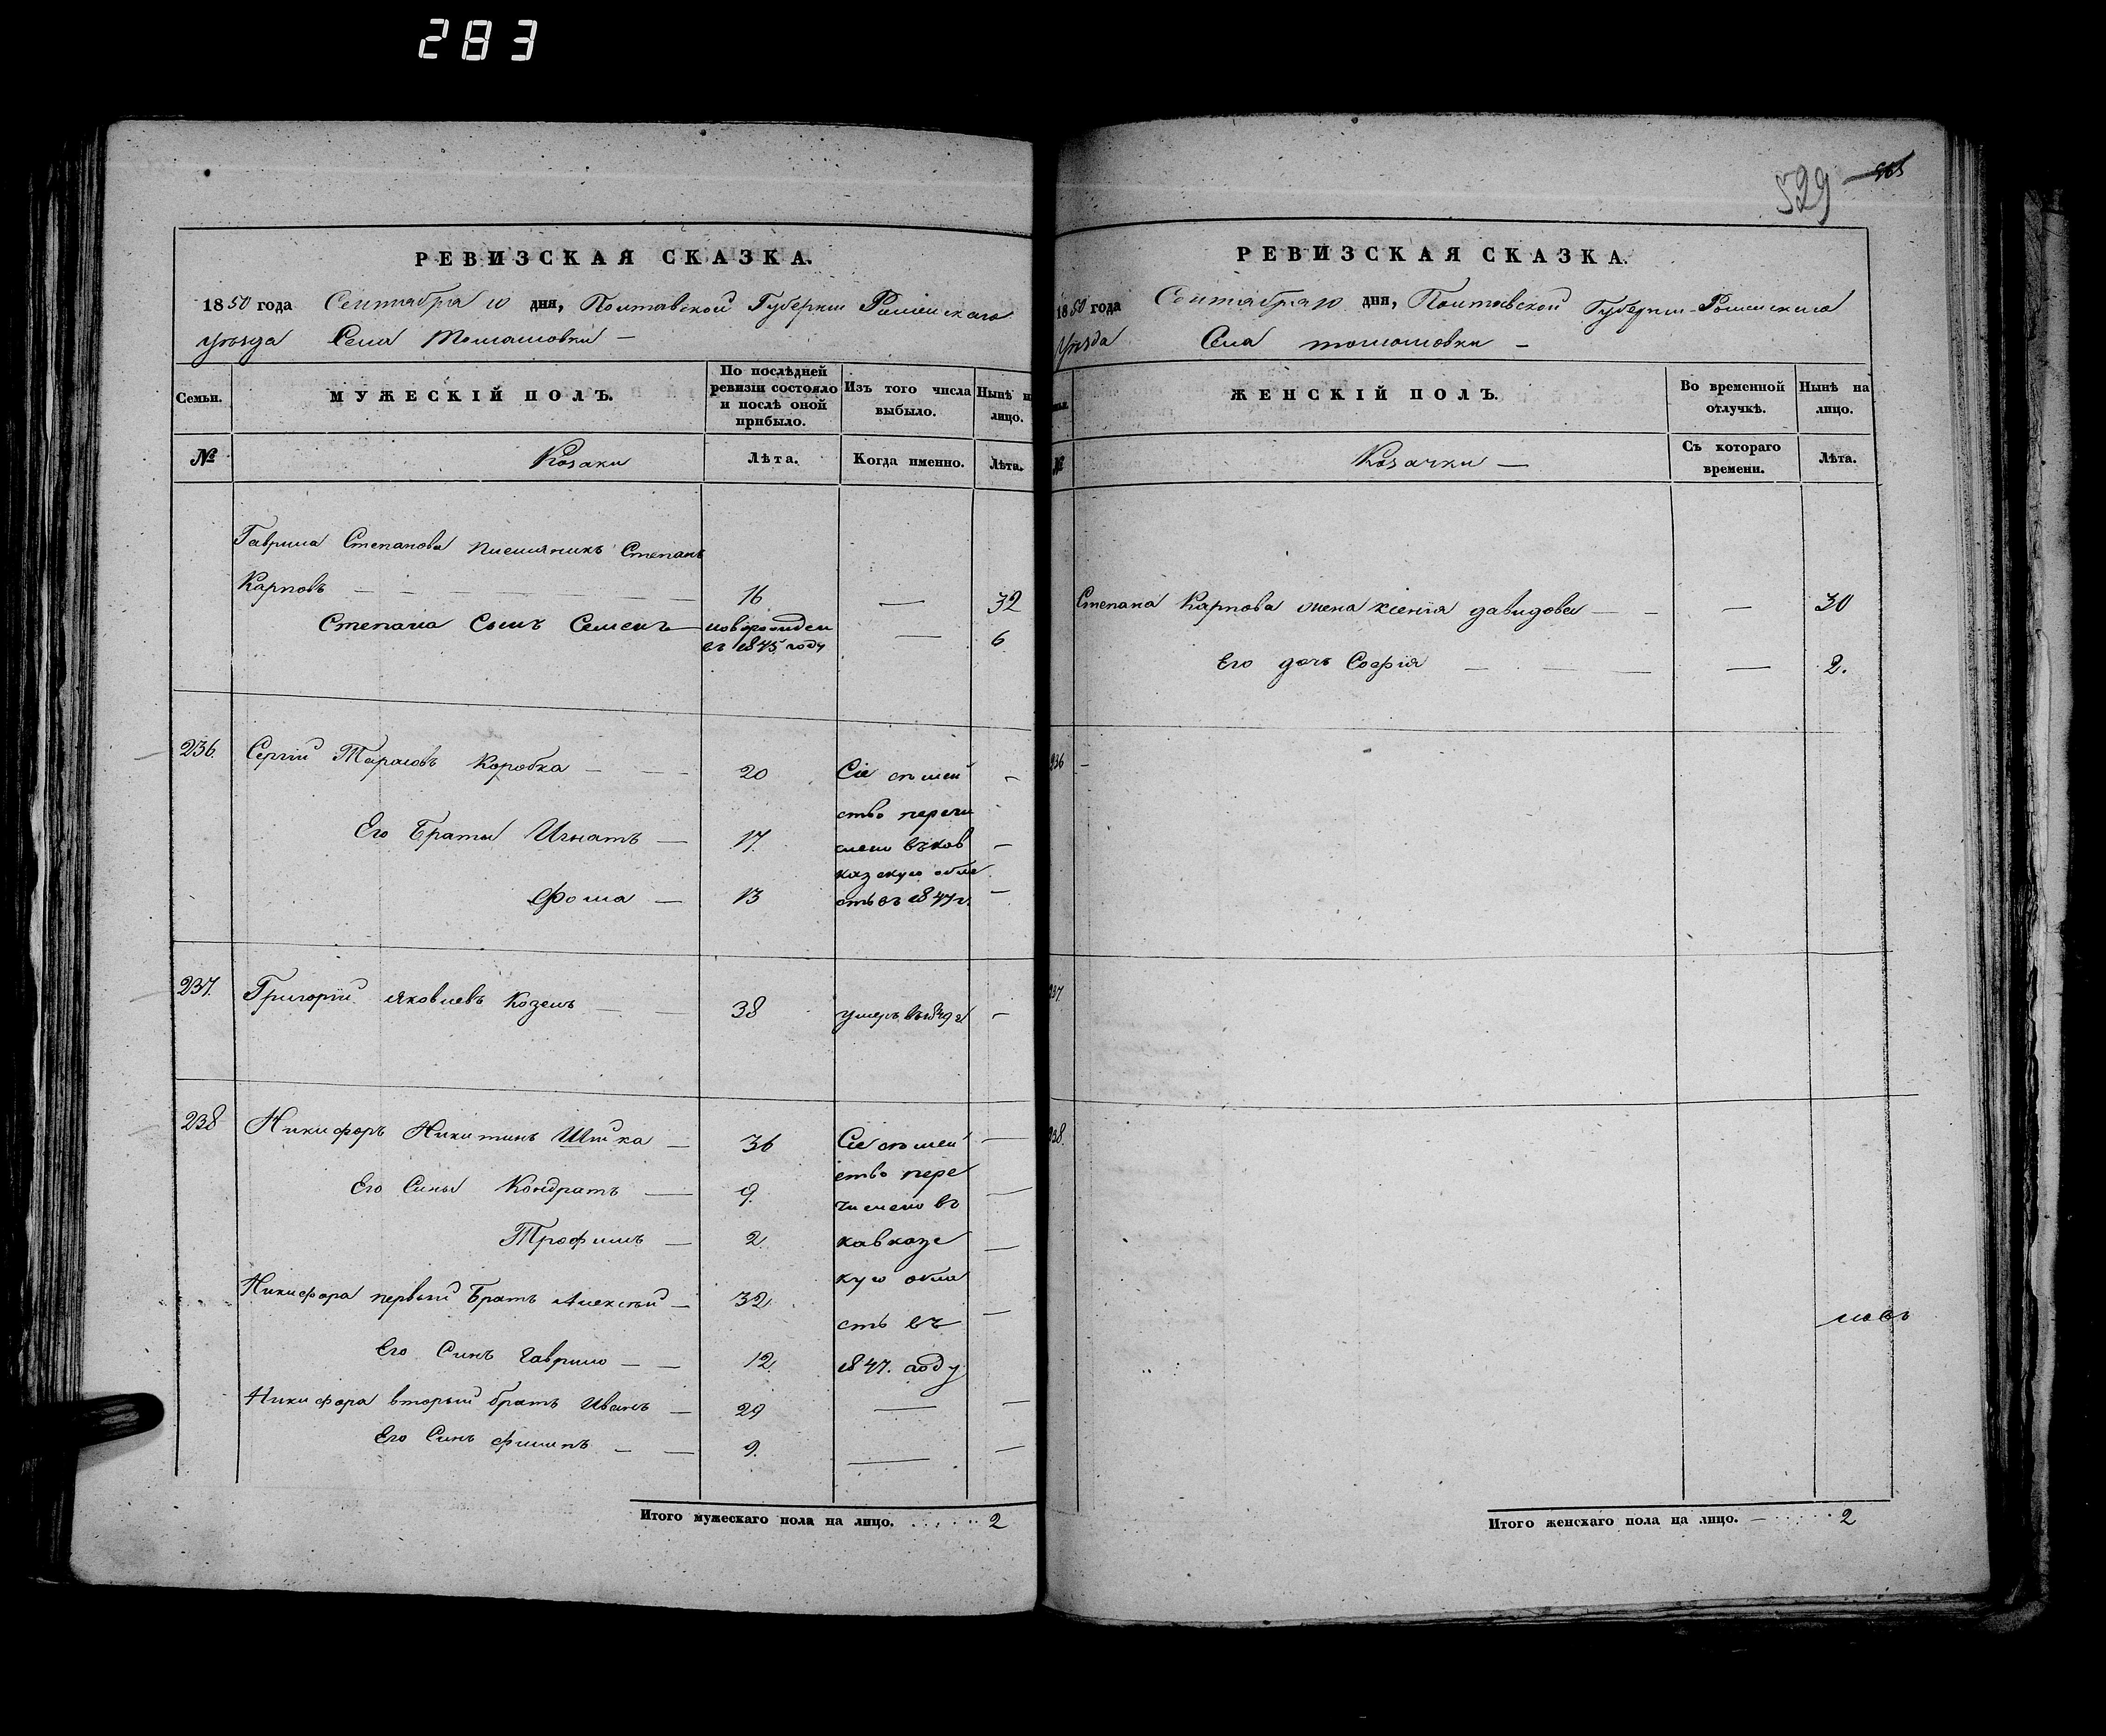 283
529
РЕВИЗСКАЯ СКАЗКА.
1850 года Сентября 10 дня, Полтавской Губерніи Роменскаго
уѣзда Села Томашовки —
Семьи.
МУЖЕСКІЙ ПОЛЪ.
По послѣдней ревизіи состояло и послѣ оной прибыло.
Изъ того числа выбыло.
Нынѣ на лицо.
№
Козаки
Лѣта.
Когда именно.
Лѣта.
Гаврила Степанова племяникъ Степанъ
Карповъ — 16 — 32
Степана Сынъ Семенъ — новорожден — 6
въ 1845 году
236. Сергій Тарасовъ Коробка — 20 Сіе сѣмей —
ство пере
Его Браты Игнатъ — 17. въ Кав —
казскую обла
Фома — 13 сть въ 1847 г. —
237. Григорій Яковлевъ Козелъ — 38 умеръ въ 1849 г —
238 Никифоръ Никитинъ — 36 Сіе сѣмей —
ство пере
Его Сины Кондратъ — 9. числено въ —
Трофимъ — 2. кавказс —
кую обла
Никифора первый Братъ Алексѣй — 32 сть въ —
Его Синъ Гаврило — 12 1847. году
Никифора вторый братъ Иванъ — 29 — —
Его Синъ Филипъ — 9. — —
Итого мужескаго пола на лицо. 2
РЕВИЗСКАЯ СКАЗКА.
1850 года Сентября 10 дня, Полтавской Губерніи Роменскаго
Уѣзда Села Томашовки —
ЖЕНСКІЙ ПОЛЪ.
Во временной отлучкѣ.
Нынѣ на лицо.
№
Козачки —
Съ котораго времени.
Лѣта.
Степана Карпова жена Ксенія Давидова — — 30
Его дочь Софія — — 2.
236 —
237.
238.
Итого женскаго пола на лицо. — 2